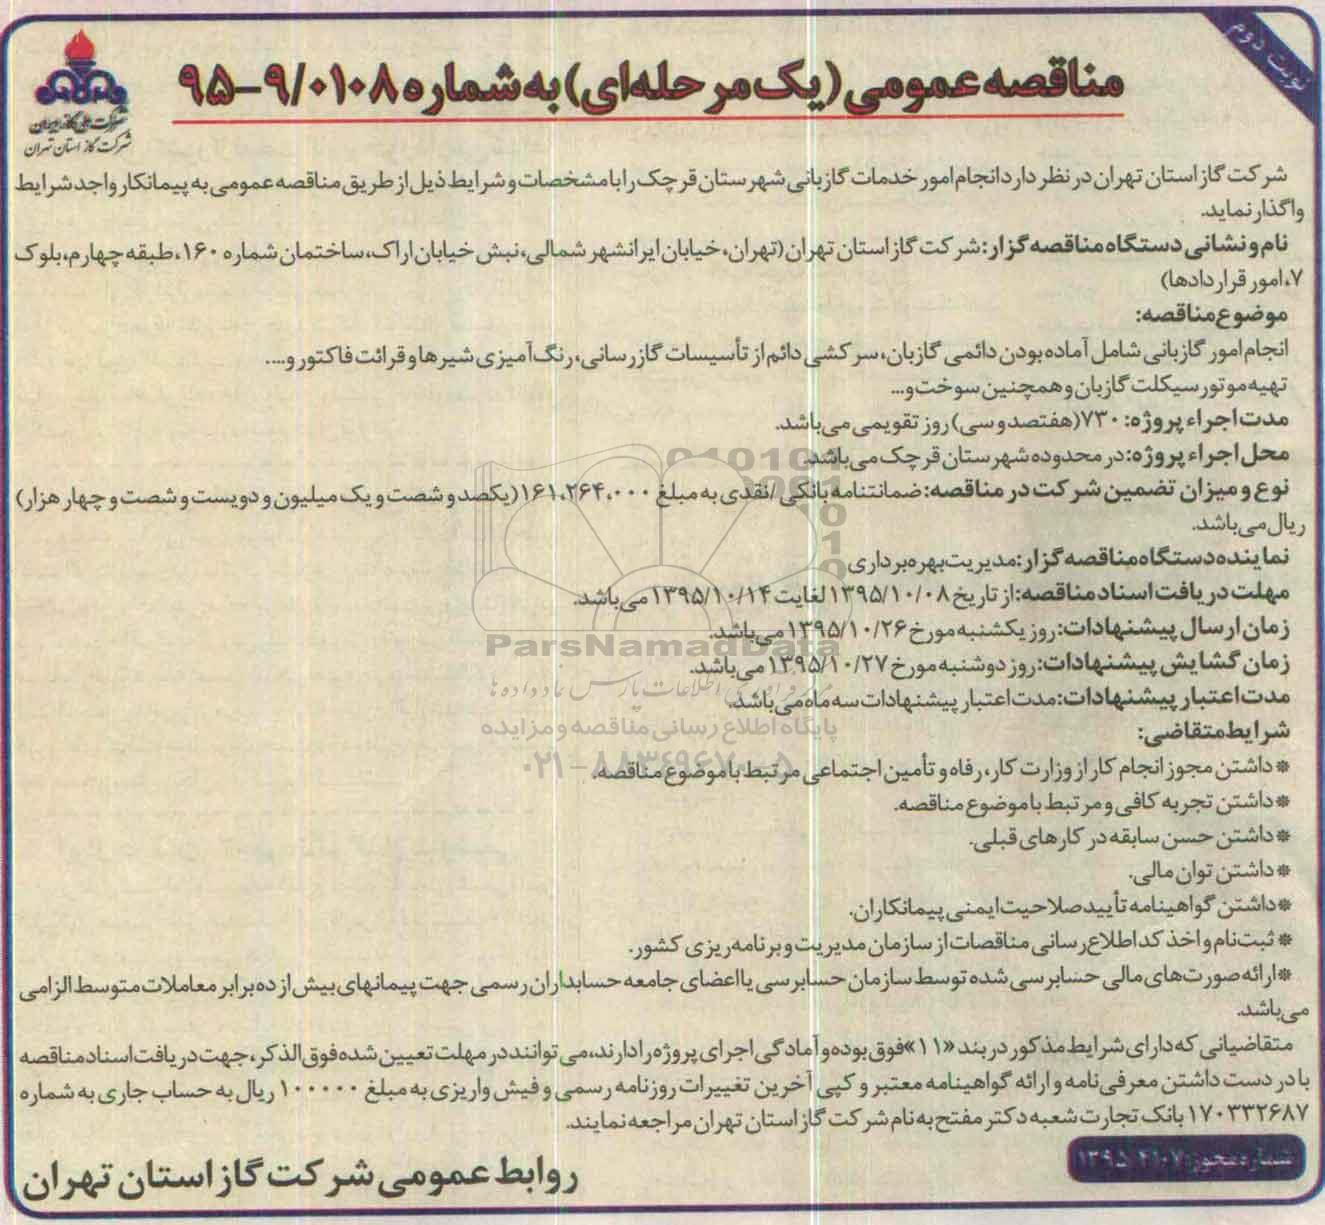 نوبت دوم
مناقصه عمومی (یک مرحله‌ای) به شماره ۹/۰۱۰۸-۹۵
شرکت ملی گاز ایران
شرکت گاز استان تهران
شرکت گاز استان تهران در نظر دارد انجام امور خدمات گازبانی شهرستان قرچک را با مشخصات و شرایط ذیل از طریق مناقصه عمومی به پیمانکار واجد شرایط
واگذار نماید.
نام و نشانی دستگاه مناقصه گزار: شرکت گاز استان تهران (تهران، خیابان ایرانشهر شمالی، نبش خیابان اراک، ساختمان شماره ۱۶۰، طبقه چهارم، بلوک
۷، امور قراردادها)
موضوع مناقصه:
انجام امور گازبانی شامل آماده بودن دائمی گازبان، سرکشی دائم از تأسیسات گازرسانی، رنگ آمیزی شیرها و قرائت فاکتور و....
تهیه موتور سیکلت گازبان و همچنین سوخت و...
مدت اجراء پروژه: ۷۳۰ (هفتصد و سی) روز تقویمی می‌باشد.
محل اجراء پروژه: در محدوده شهرستان قرچک می‌باشد.
نوع و میزان تضمین شرکت در مناقصه: ضمانتنامه بانکی / نقدی به مبلغ ۱۶۱،۲۶۴،۰۰۰ (یکصد و شصت و یک میلیون و دویست و شصت و چهار هزار)
ریال می‌باشد.
نماینده دستگاه مناقصه گزار: مدیریت بهره برداری
مهلت دریافت اسناد مناقصه: از تاریخ ۱۳۹۵/۱۰/۰۸ لغایت ۱۳۹۵/۱۰/۱۴ می‌باشد.
زمان ارسال پیشنهادات: روز یکشنبه مورخ ۱۳۹۵/۱۰/۲۶ می‌باشد.
زمان گشایش پیشنهادات: روز دوشنبه مورخ ۱۳۹۵/۱۰/۲۷ می‌باشد.
مدت اعتبار پیشنهادات: مدت اعتبار پیشنهادات سه ماه می‌باشد.
شرایط متقاضی:
* داشتن مجوز انجام کار از وزارت کار، رفاه و تأمین اجتماعی مرتبط با موضوع مناقصه.
* داشتن تجربه کافی و مرتبط با موضوع مناقصه.
* داشتن حسن سابقه در کارهای قبلی.
* داشتن توان مالی.
* داشتن گواهینامه تأیید صلاحیت ایمنی پیمانکاران.
* ثبت نام و اخذ کد اطلاع رسانی مناقصات از سازمان مدیریت و برنامه ریزی کشور.
* ارائه صورت‌های مالی حسابرسی شده توسط سازمان حسابرسی یا اعضای جامعه حسابداران رسمی جهت پیمانهای بیش از ده برابر معاملات متوسط الزامی
می‌باشد.
متقاضیانی که دارای شرایط مذکور در بند «۱۱» فوق بوده و آمادگی اجرای پروژه را دارند، می‌توانند در مهلت تعیین شده فوق الذکر، جهت دریافت اسناد مناقصه
با در دست داشتن معرفی نامه و ارائه گواهینامه معتبر و کپی آخرین تغییرات روزنامه رسمی و فیش واریزی به مبلغ ۱۰۰۰۰۰ ریال به حساب جاری به شماره
۱۷۰۳۳۲۶۸۷ بانک تجارت شعبه دکتر مفتح به نام شرکت گاز استان تهران مراجعه نمایند.
شماره مجوز: ۱۳۹۵.۴۱۰۷
روابط عمومی شرکت گاز استان تهران
ParsNamadData
پایگاه اطلاع رسانی مناقصه و مزایده
۰۲۱-۸۸۳۴۹۶۷۰-۵